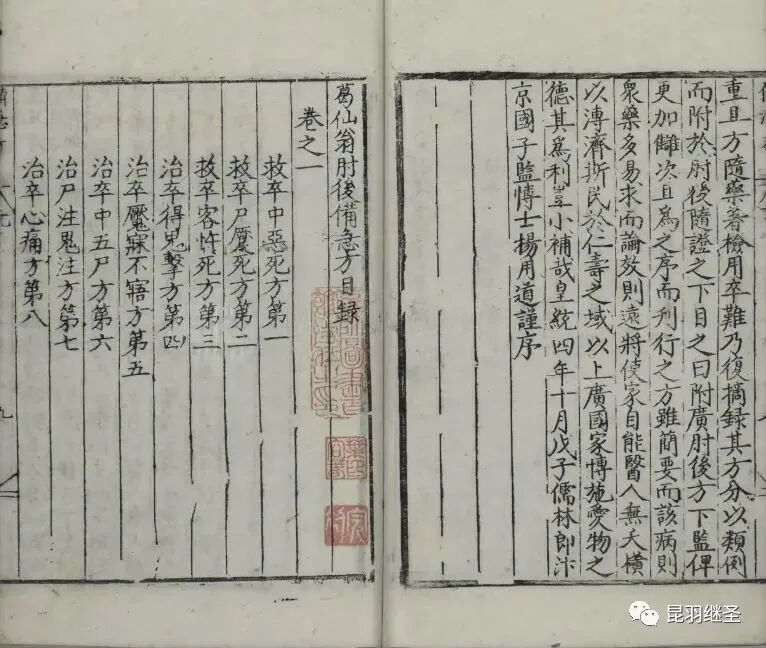 重且方隨藥著檢用卒難乃復摘録其方分以類例
而附於肘後隨證之下目之曰附廣肘後方下監俾
更加讎次且為之序而刋行之方雖簡要而該病則
衆藥多易求而論效則遠將使家自能醫人無夭橫
以溥濟斯民於仁壽之域以上廣國家博施愛物之
德其為利豈小補哉皇統四年十月戊子儒林郎汴
京國子監博士楊用道謹序
葛仙翁肘後備急方目録
卷之一
救卒中惡死方第一
救卒尸蹷死方第二
救卒客忤死方第三
治卒得鬼擊方第四
治卒魘寐不寤方第五
治卒中五尸方第六
治尸注鬼注方第七
治卒心痛方第八
昆羽继圣